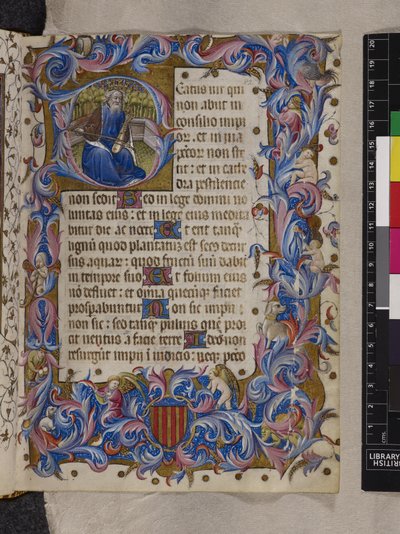 Eatus uir qui
non abiit in
consilio impi
or: et in uia
pctor non ste
tit: et in cathe
dra pestilencie
non sedit Sed in lege domini uo
luntas eius: et in lege eius medita
bitur die ac nocte Et erit tanq
lignu quod plantatus est secus decur
sus aquar: quod fructu suu dabit
in tempore suo Et folium eius
no defluet: et omia quecuq faciet
prosperabuntur Non sic impii
non sic: sed tanq puluis que proi
cit uentus a facie terre Ideo non
resurgut impii i iudicio: neq pecc
LIBRARY
BRITISH
cms.
1
2
3
4
5
6
7
8
9
10
11
12
13
14
15
16
17
18
19
20